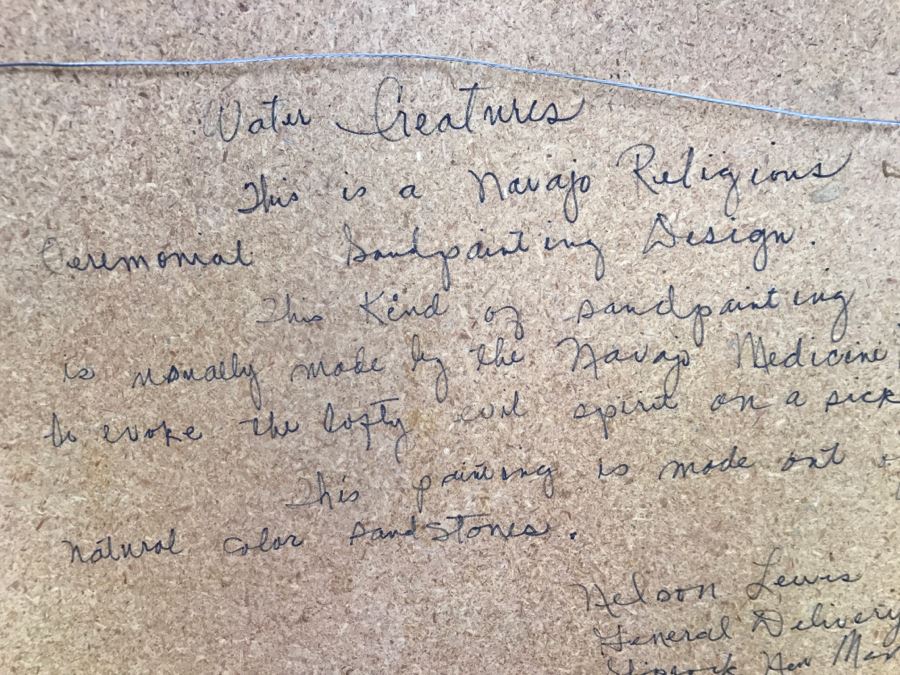 Water Creatures
This is a Navajo Religious
Ceremonial Sandpainting Design.
This Kind of sandpainting
is usually made by the Navajo Medicine
to evoke the lofty evil spirit on a sick
This painting is made out
natural color sandstones.
Nelson Lewis
General Delivery
New